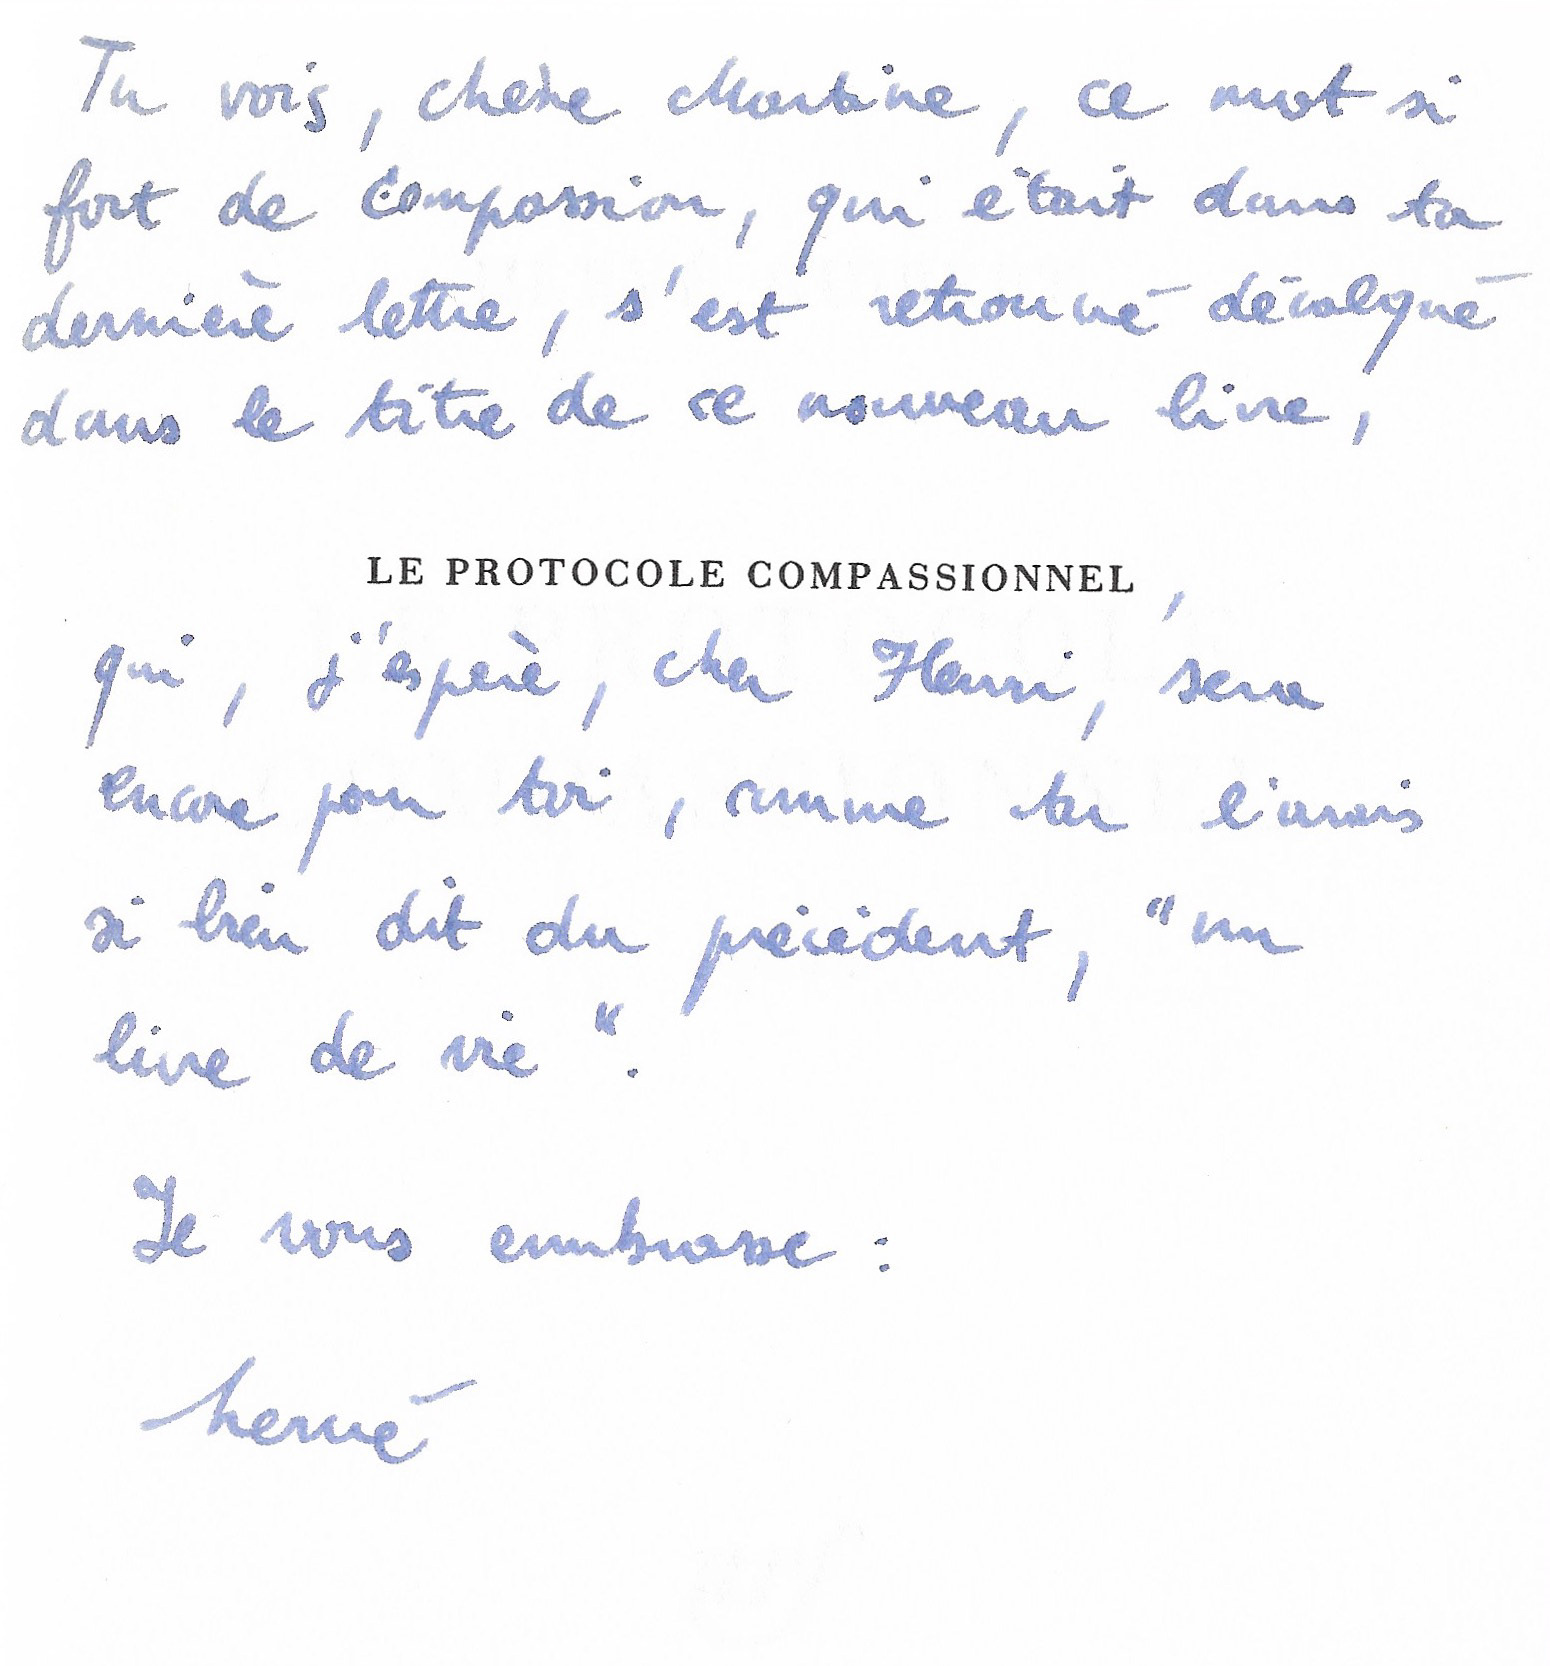 Tu vois, chère Martine, ce mot si
fort de compassion, qui était dans ta
dernière lettre, s'est retrouvé décalqué
dans le titre de ce nouveau livre,
LE PROTOCOLE COMPASSIONNEL,
qui, j'espère, cher Henri, sera
encore pour toi, comme tu l'avais
si bien dit du précédent, "un
livre de vie".
Je vous embrasse :
hervé